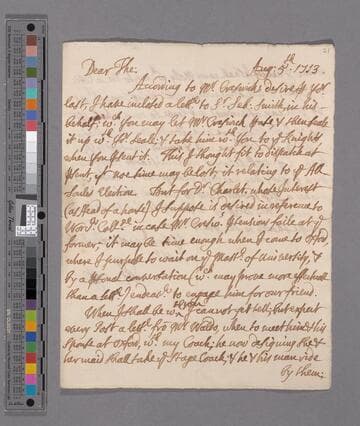 21
Aug: 5th. 1713.
Dear Tho:
According to Mr. Creswicks desires yr
last, I have inclosed a lettr. to Sr. Seb: Smith, in his
behalf: wch. you may let Mr. Creswick &
it up wth. yr. Seale: & take him wth. you to ye Knight
when you p'sent it. This I thought fit to dispatch at
p'sent, yt noe time may be lost; it relating to ye All-
Soules Election. But for Dr. Charlet, whose Interest
(as Head of a house) I suppose is desired in reference to
Coll: in case Mr. Cresw: p'tensions faile at ye
former: it may be time enough when I come to Oxōn,
when I purpose to wait on ye Mastr. of University, &
by a p'sonal conversation (wch. may prove more effectuall
than a lettr.) endeavr. to engage him for our friend.
When I shall be wth. you I cannot yet tell; but expect
every Post a lettr. frō Mr. Waldo, when to meet him & his
Spouse at Oxōn, wth. my Coach; he now designing she &
her maid shall take ye Stage Coach, & he & his man ride
by them: